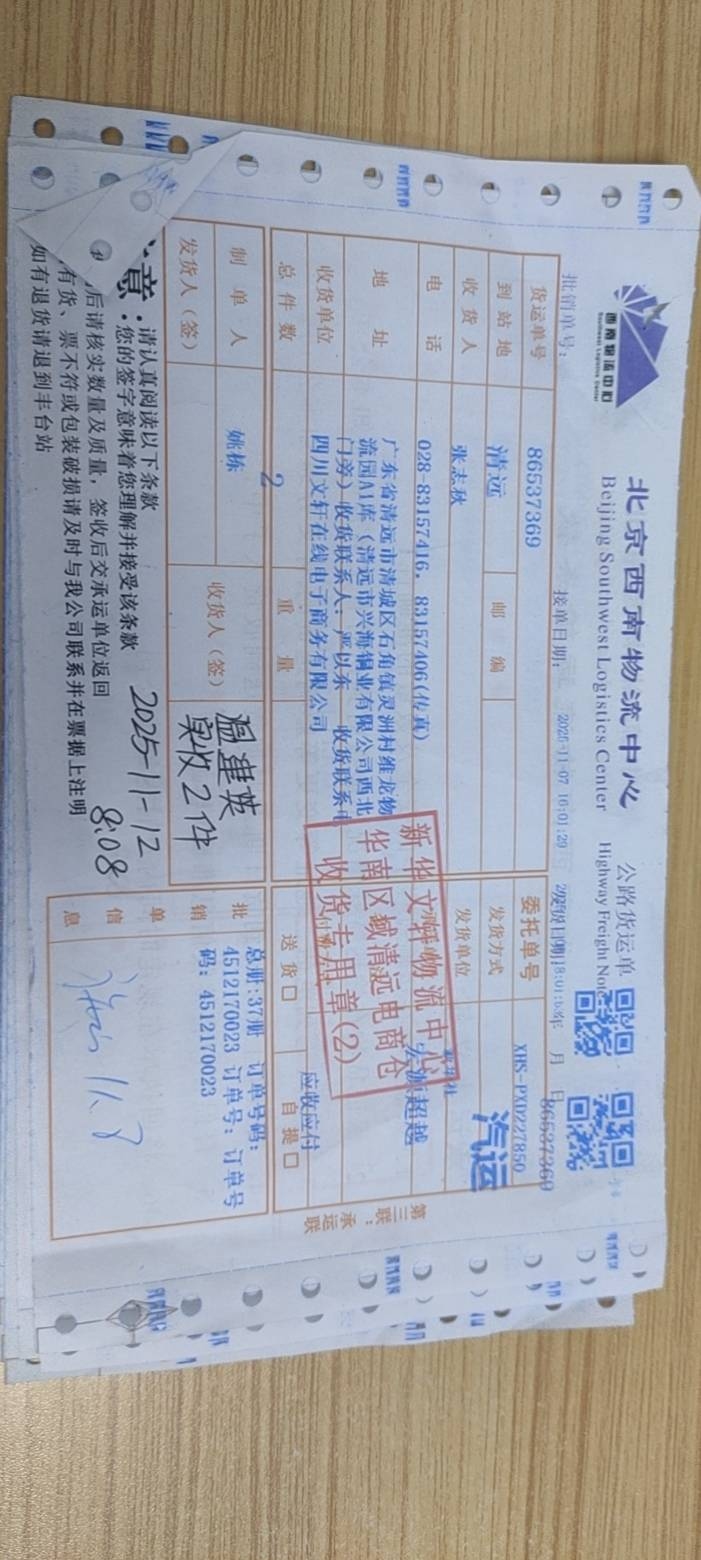 西南物流中心
Southwest Logistics Center
北京西南物流中心
Beijing Southwest Logistics Center
公路货运单
Highway Freight Note
批销单号：
接单日期：
2025-11-07 16:01:29
年 月 日
86537369
货运单号
86537369
委托单号
XHS-PXD227850
到站地
清远
邮编
发货方式
汽运
收货人
张志秋
发货单位
电话
028-83157416，83157406(传真)
宏源超越
地址
广东省清远市清城区石角镇灵洲村维龙物
流园A1库（清远市兴海铜业有限公司西北
门旁）收货联系人：严以东 收货联系电
收货单位
四川文轩在线电子商务有限公司
应收应付
总件数
2
重量
送货□
自提□
制单人
姚栋
收货人（签）
温建英
实收2件
发货人（签）
批销单信息
总册:37册 订单号码:
4512170023 订单号: 订单号
码: 4512170023
新华文轩物流中心
华南区域清远电商仓
收货专用章(2)
意：
请认真阅读以下条款
您的签字意味着您理解并接受该条款
后请核实数量及质量，签收后交承运单位返回
有货、票不符或包装破损请及时与我公司联系并在票据上注明
如有退货请退到丰台站
2025-11-12
8:08
11.8
第三联：承运联